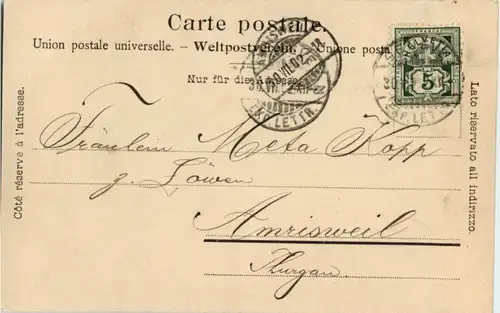 Carte postale.
Union postale universelle. – Weltpostverein. – Unione posta
Nur für die Adresse.
Côté réservé à l'adresse.
Lato riservato all indirizzo.
HELVETIA
5
EXP. LETTR.
EXP. LETTR.
Fräulein Meta Kopp
z. Löwen
Amrisweil
Thurgau.